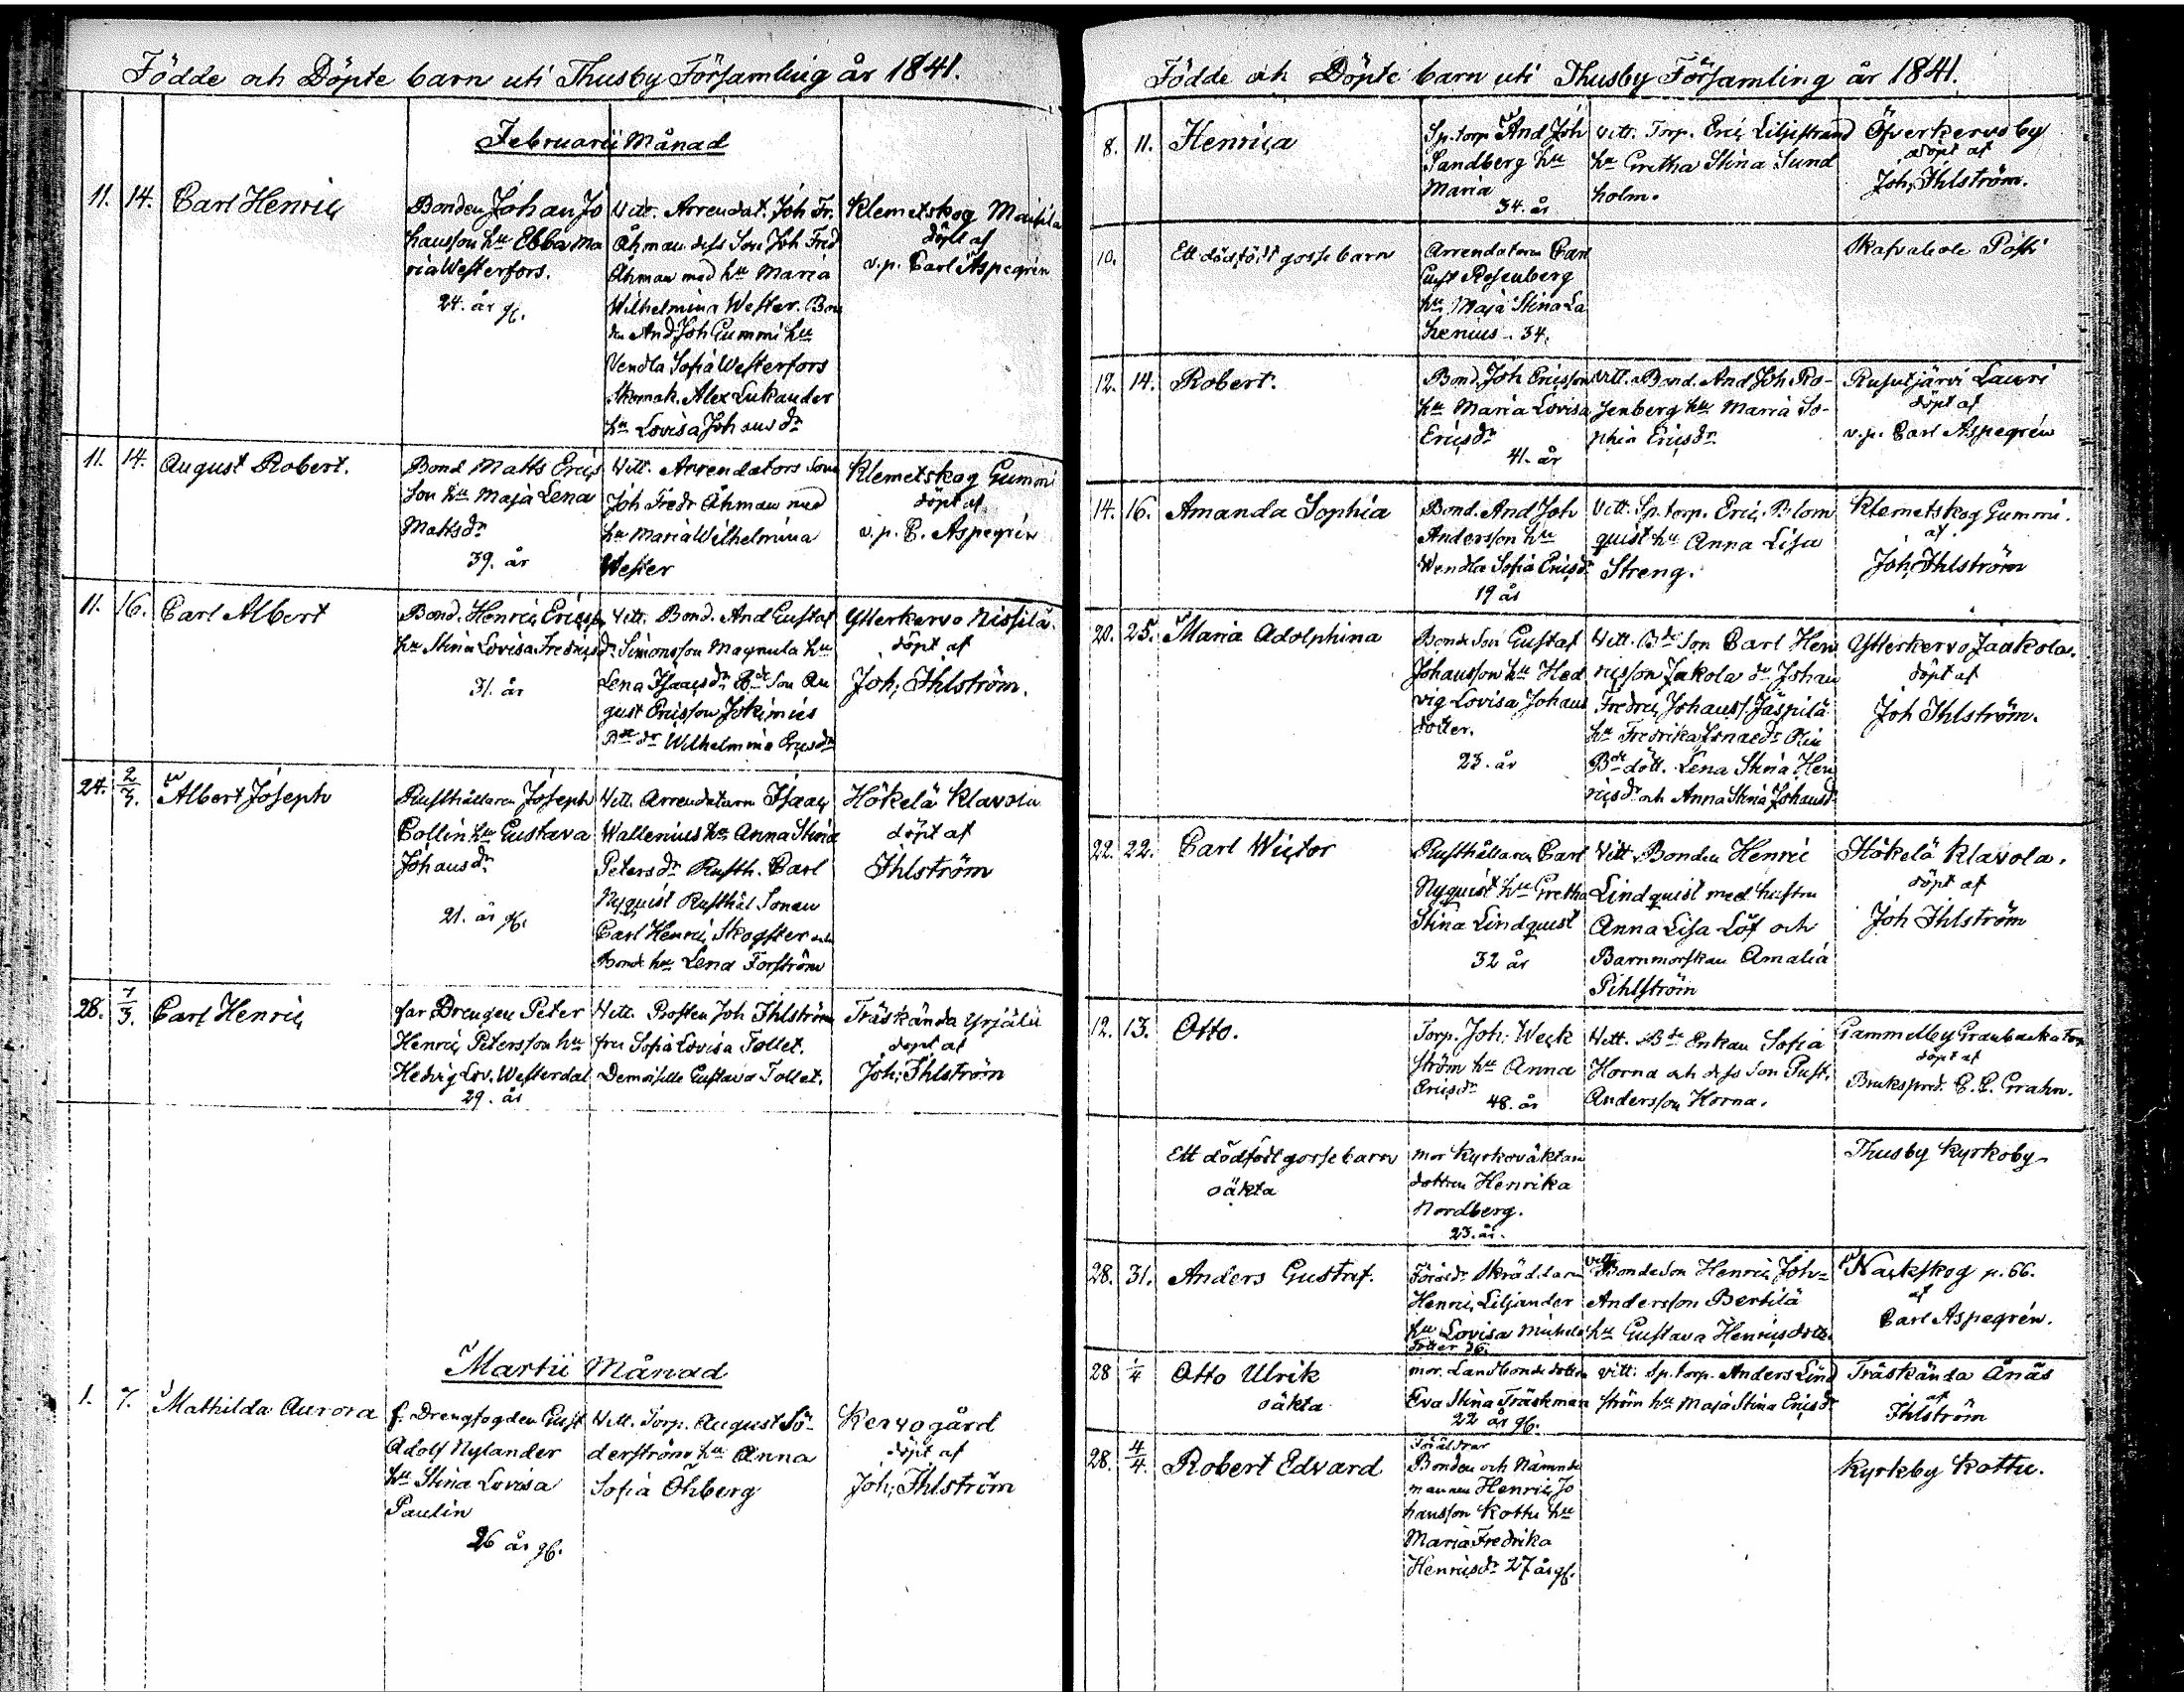 Födde och Döpte barn uti Thusby Församling år 1841.
Februarii Månad
11. 14. Carl Henric
Bonden Johan Jo
hansson hu Ebba Ma
ria Westerfors.
24. år gl.
Vittn. Arrendat. Joh Fr.
Åhman dess Son Joh Fred
Åhman med hu Maria
Wilhelmina Wester. Bon
den And Joh Gummi hu
Vendla Sofia Westerfors
Skomak. Alex Lukander
hu Lovisa Johansdr
Klemetskog Mattila
döpt af
v.p. Carl Aspegrén
11. 14. August Robert.
Bond Matts Erics
son hu Maja Lena
Mattsdr
39. år
Vitt. Arrendators Son
Joh Fredr Åhman med
hu Maria Wilhelmina
Wester
Klemetskog Gummi
döpt af
v.p. C. Aspegrén
11. 16. Carl Albert
Bond. Henric Ericss
hu Stina Lovisa Fredricsd
31. år
Vitt. Bond. And Gustaf
Simonsson Magnula hu
Lena Isaacsdr Bde Son Au
gust Ericsson Jokimies
Bde dr Wilhelmina Ericsdr
Ytterkervo Nissilä.
döpt af
Joh; Ihlström.
24. 2/3. Albert Joseph
Rusthållaren Joseph
Collin hu Gustava
Johansdr
21. år gl.
Vitt. Arrendatorn Isaac
Wallenius hu Anna Stina
Petersdr Rusth. Carl
Nyquist Rusthål Sonen
Carl Henric Skogster och
Bond hu Lena Forström
Hökelä Klavola
döpt af
Ihlström
28. 7/3. Carl Henric
far Drengen Peter
Henric Petersson hu
Hedvig Lov. Westerdal
29. år
Vitt. Prosten Joh Ihlström
fru Sofia Lovisa Tollet.
Demoiselle Gustava Tollet.
Träskända Yrjälä
döpt af
Joh; Ihlström
Martii Månad
1. 7. Mathilda Aurora
f. Drengfogden Gust
Adolf Nylander
hu Stina Lovisa
Paulin
26 år gl.
Vitt. Torp. August Sö-
derström hu Anna
Sofia Öhberg
Kervo gård
döpt af
Joh; Ihlström
Födde och Döpte barn uti Thusby Församling år 1841.
8. 11. Henrica
Sp. torp And Joh
Sandberg hu
Maria
34. år
Vitt. Torp. Eric Liljestrand
hu Gretha Stina Sund
holm.
Öfverkervo by
döpt af
Joh; Ihlström.
10. Ett dödfödt gossebarn
Arrendatorn Carl
Gust Rosenberg
hu Maja Stina La
henius. 34.
Skafvabole Pósti
12. 14. Robert.
Bond. Joh Ericsson
hu Maria Lovisa
Ericsdr
41. år
Vitt. Bond. And Joh Ro-
senberg hu Maria So-
phia Ericsdr
Rusutjärvi Lauri
döpt af
v.p. Carl Aspegrén
14. 16. Amanda Sophia
Bond. And Joh
Andersson hu
Wendla Sofia Ericsdr
19 år
Vitt. Sp. torp. Eric Blom
quist hu Anna Lisa
Streng.
Klemetskog Gummi.
af
Joh; Ihlström
20. 25. Maria Adolphina
Bonde Son Gustaf
Johansson hu Hed
vig Lovisa Johans
dotter.
23. år
Vitt. Bde Son Carl Hen
ricsson Jakola dr Johan
Fredric Johanss. Jäspilä
hu Fredrika
Bde dött. Lena Stina Hen
ricsdr och Anna Stina Johansd
Ytterkervo Jaakola.
döpt af
Joh Ihlström.
22. 22. Carl Wictor
Rusthållaren Carl
Nyquist hu Gretha
Stina Lindquist
32 år
Vitt. Bonden Henric
Lindquist med hustru
Anna Lisa Löf och
Barnmorskan Amalia
Pihlström
Hökelä Klavola.
döpt af
Joh Ihlström
12. 13. Otto.
Torp. Joh: Weck
ström hu Anna
Ericsdr
48. år
Vitt. Bde Enkan Sofia
Horna och dess Son Gust.
Andersson Horna.
Gammelby Granbacka torp
döpt af
Brukspred. C. E. Grahn.
Ett dödfödt gossebarn
oäkta
mor Kyrkoväktare
dottren Henrika
Nordberg.
23. år.
Thusby Kyrkoby
28. 31. Anders Gustaf.
Föräldr Skräddaren
Henric Liljander
hu Lovisa Michels
dotter 36.
vitt. Bonde Son Henric Joh=
Andersson Bertilä
hu Gustava Henricsdotter
Nackskog n. 66.
af
Carl Aspegrén.
28 1/4 Otto Ulrik
oäkta
mor. Landbonde dotter
Eva Stina Träskman
22 år gl.
vitt. Sp. torp. Anders Lind
ström hu Maja Stina Ericsdr
Träskända Ånäs
af
Ihlström
28. 4/4. Robert Edvard
Föräldrar
Bonden och Nämnde
mannen Henric Jo
hansson Kottu hu
Maria Fredrika
Henricsdr 27 år gl.
Kyrkby Kottu.